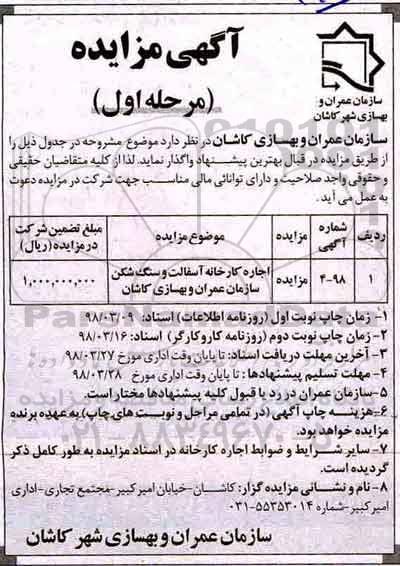 آگهی مزایده
(مرحله اول)
سازمان عمران و
بهسازی شهر کاشان
سازمان عمران و بهسازی کاشان در نظر دارد موضوع مشروحه در جدول ذیل را
از طریق مزایده در قبال بهترین پیشنهاد واگذار نماید. لذا از کلیه متقاضیان حقیقی
و حقوقی واجد صلاحیت و دارای توانائی مالی مناسب جهت شرکت در مزایده دعوت
به عمل می آید.
ردیف شماره آگهی مزایده موضوع مزایده مبلغ تضمین شرکت در مزایده (ریال)
۱ ۴-۹۸ مزایده اجاره کارخانه آسفالت و سنگ شکن سازمان عمران و بهسازی کاشان ۱,۰۰۰,۰۰۰,۰۰۰
۱- زمان چاپ نوبت اول (روزنامه اطلاعات) اسناد: ۹۸/۰۳/۰۹
۲- زمان چاپ نوبت دوم (روزنامه کاروکارگر) اسناد: ۹۸/۰۳/۱۶
۳- آخرین مهلت دریافت اسناد: تا پایان وقت اداری مورخ ۹۸/۰۳/۲۷
۴- مهلت تسلیم پیشنهادها: تا پایان وقت اداری مورخ ۹۸/۰۳/۲۸
۵- سازمان عمران در رد یا قبول کلیه پیشنهادها مختار است.
۶- هزینه چاپ آگهی (در تمامی مراحل و نوبت های چاپ) به عهده برنده
مزایده خواهد بود.
۷- سایر شرایط و ضوابط اجاره کارخانه در اسناد مزایده به طور کامل ذکر
گردیده است.
۸- نام و نشانی مزایده گزار: کاشان-خیابان امیرکبیر-مجتمع تجاری-اداری
امیرکبیر-شماره ۵۵۳۵۳۰۱۴-۰۳۱
سازمان عمران و بهسازی شهر کاشان